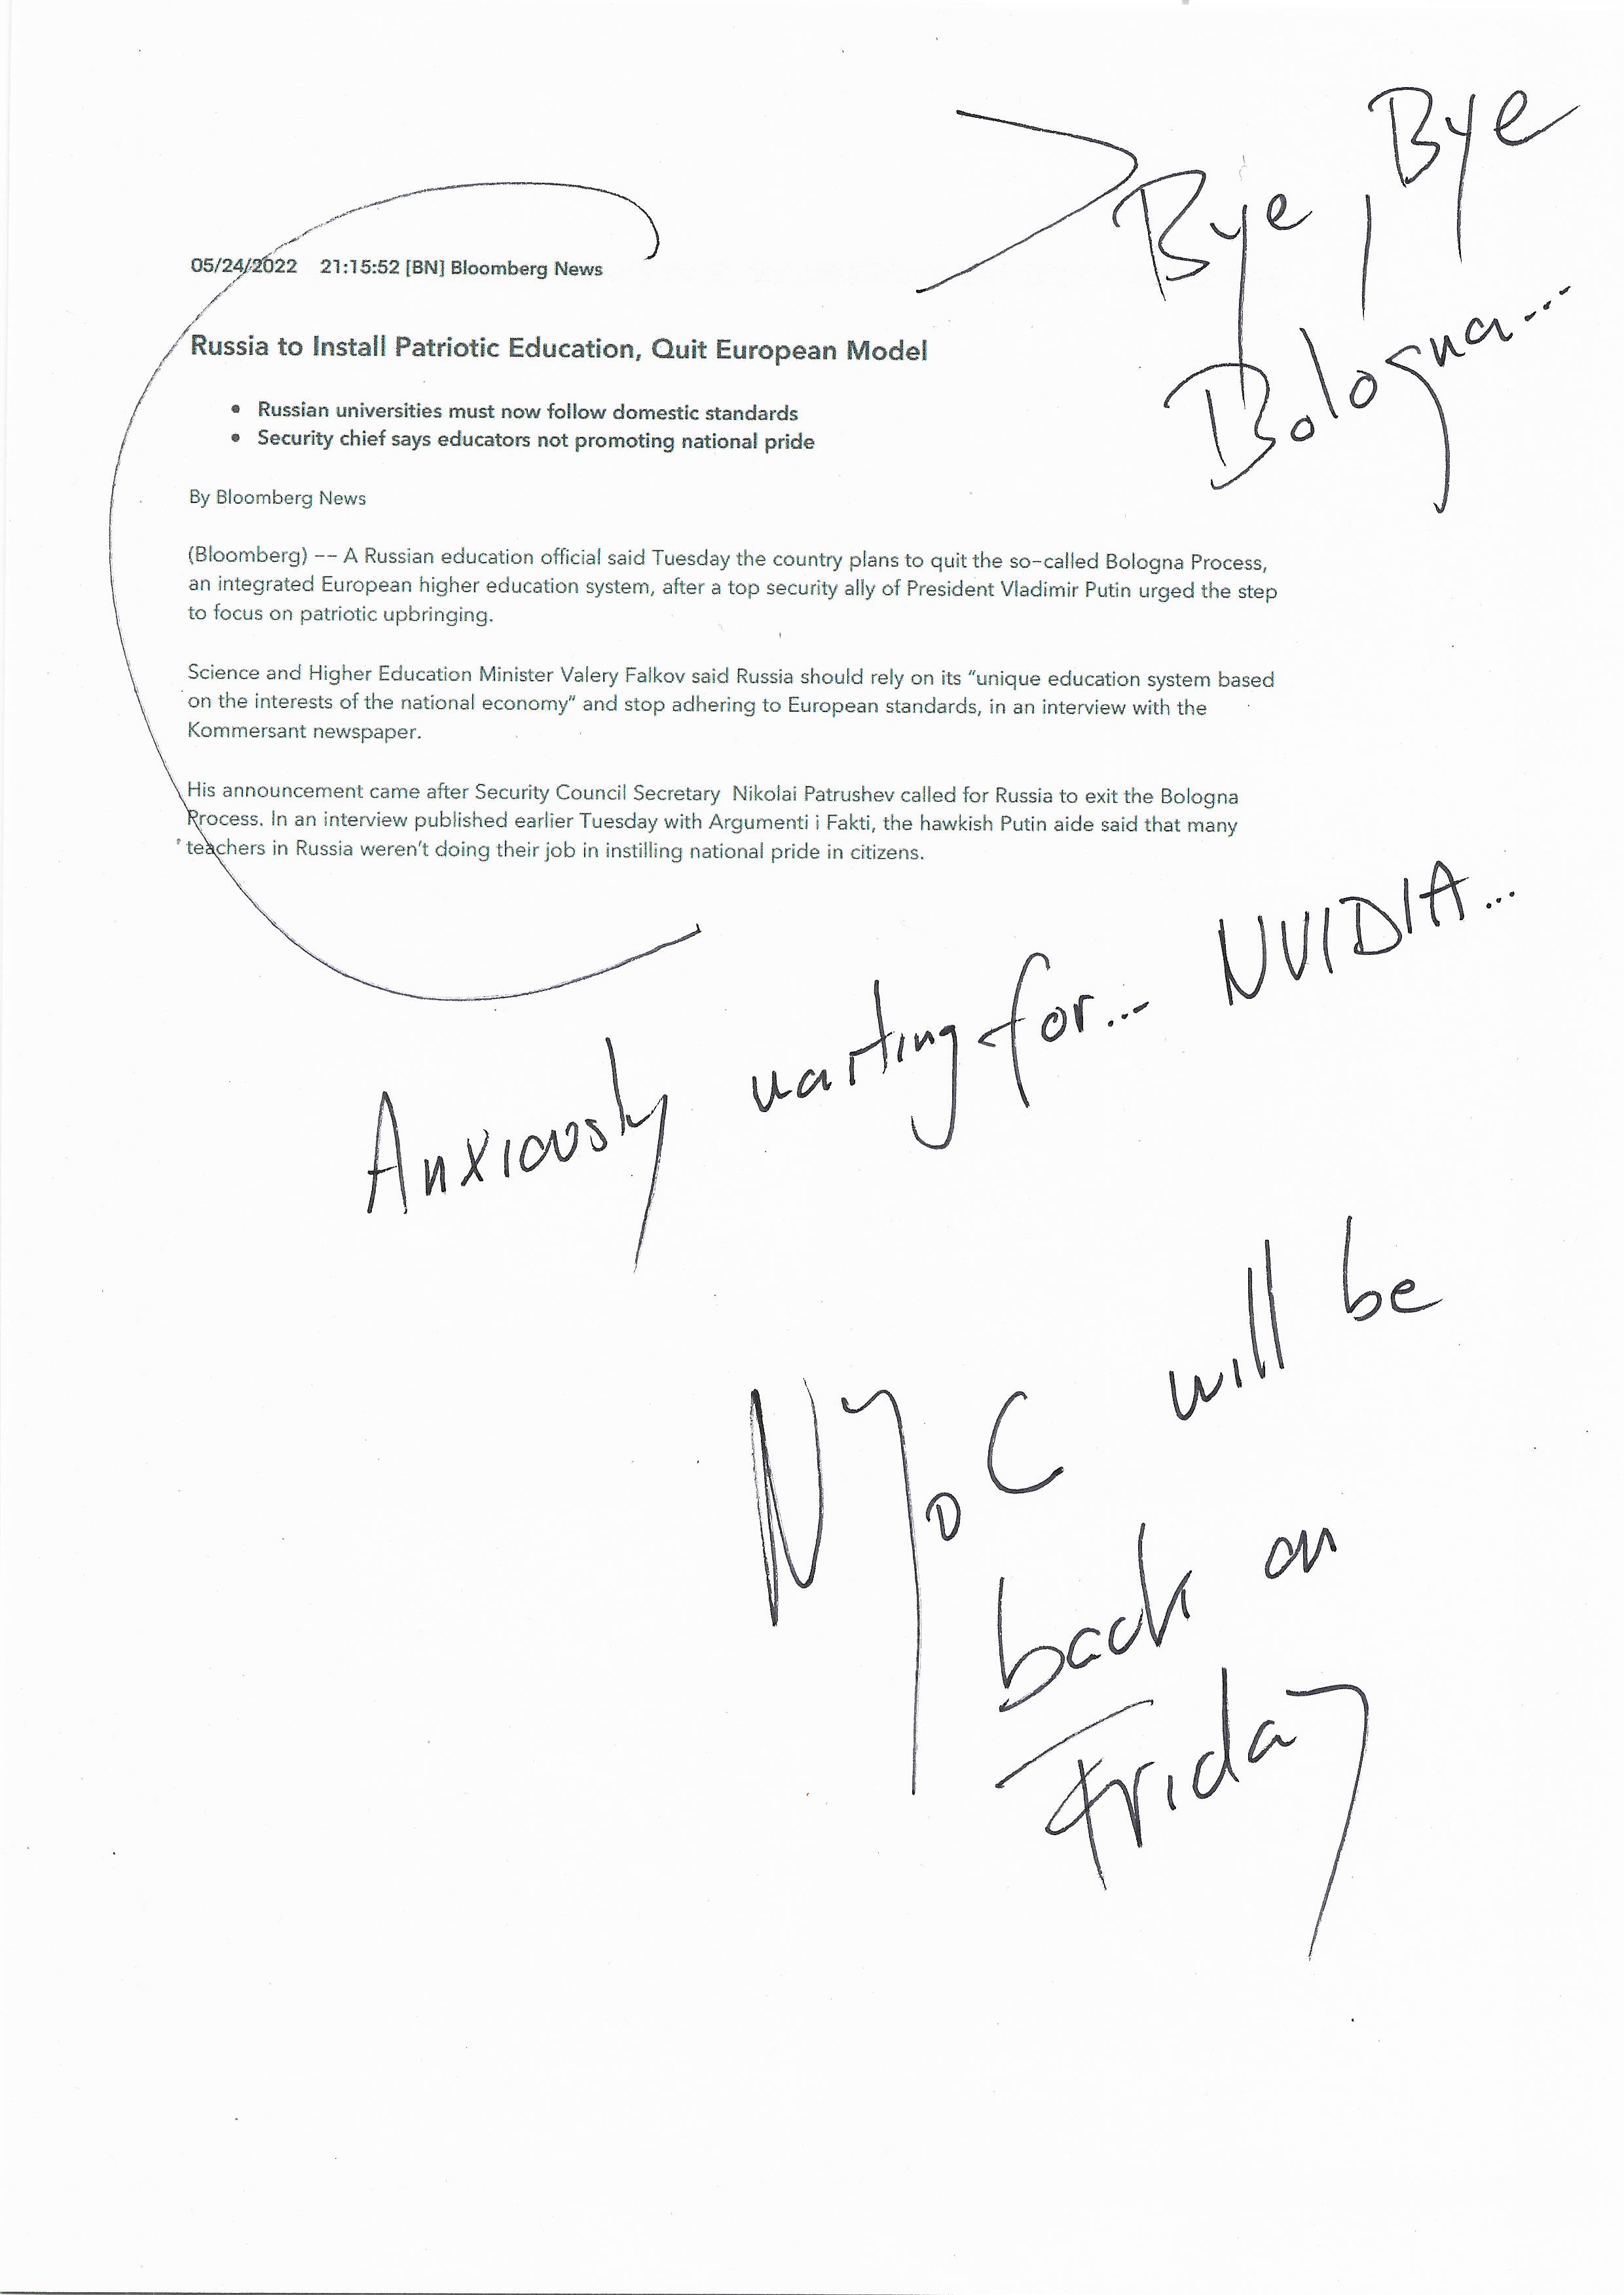 Bye, Bye
Bologna...
05/24/2022 21:15:52 [BN] Bloomberg News
Russia to Install Patriotic Education, Quit European Model
• Russian universities must now follow domestic standards
• Security chief says educators not promoting national pride
By Bloomberg News
(Bloomberg) -- A Russian education official said Tuesday the country plans to quit the so-called Bologna Process,
an integrated European higher education system, after a top security ally of President Vladimir Putin urged the step
to focus on patriotic upbringing.
Science and Higher Education Minister Valery Falkov said Russia should rely on its “unique education system based
on the interests of the national economy” and stop adhering to European standards, in an interview with the
Kommersant newspaper.
His announcement came after Security Council Secretary Nikolai Patrushev called for Russia to exit the Bologna
Process. In an interview published earlier Tuesday with Argumenti i Fakti, the hawkish Putin aide said that many
teachers in Russia weren't doing their job in instilling national pride in citizens.
Anxiously waiting for... NVIDIA...
NYoC will be
back on
Friday